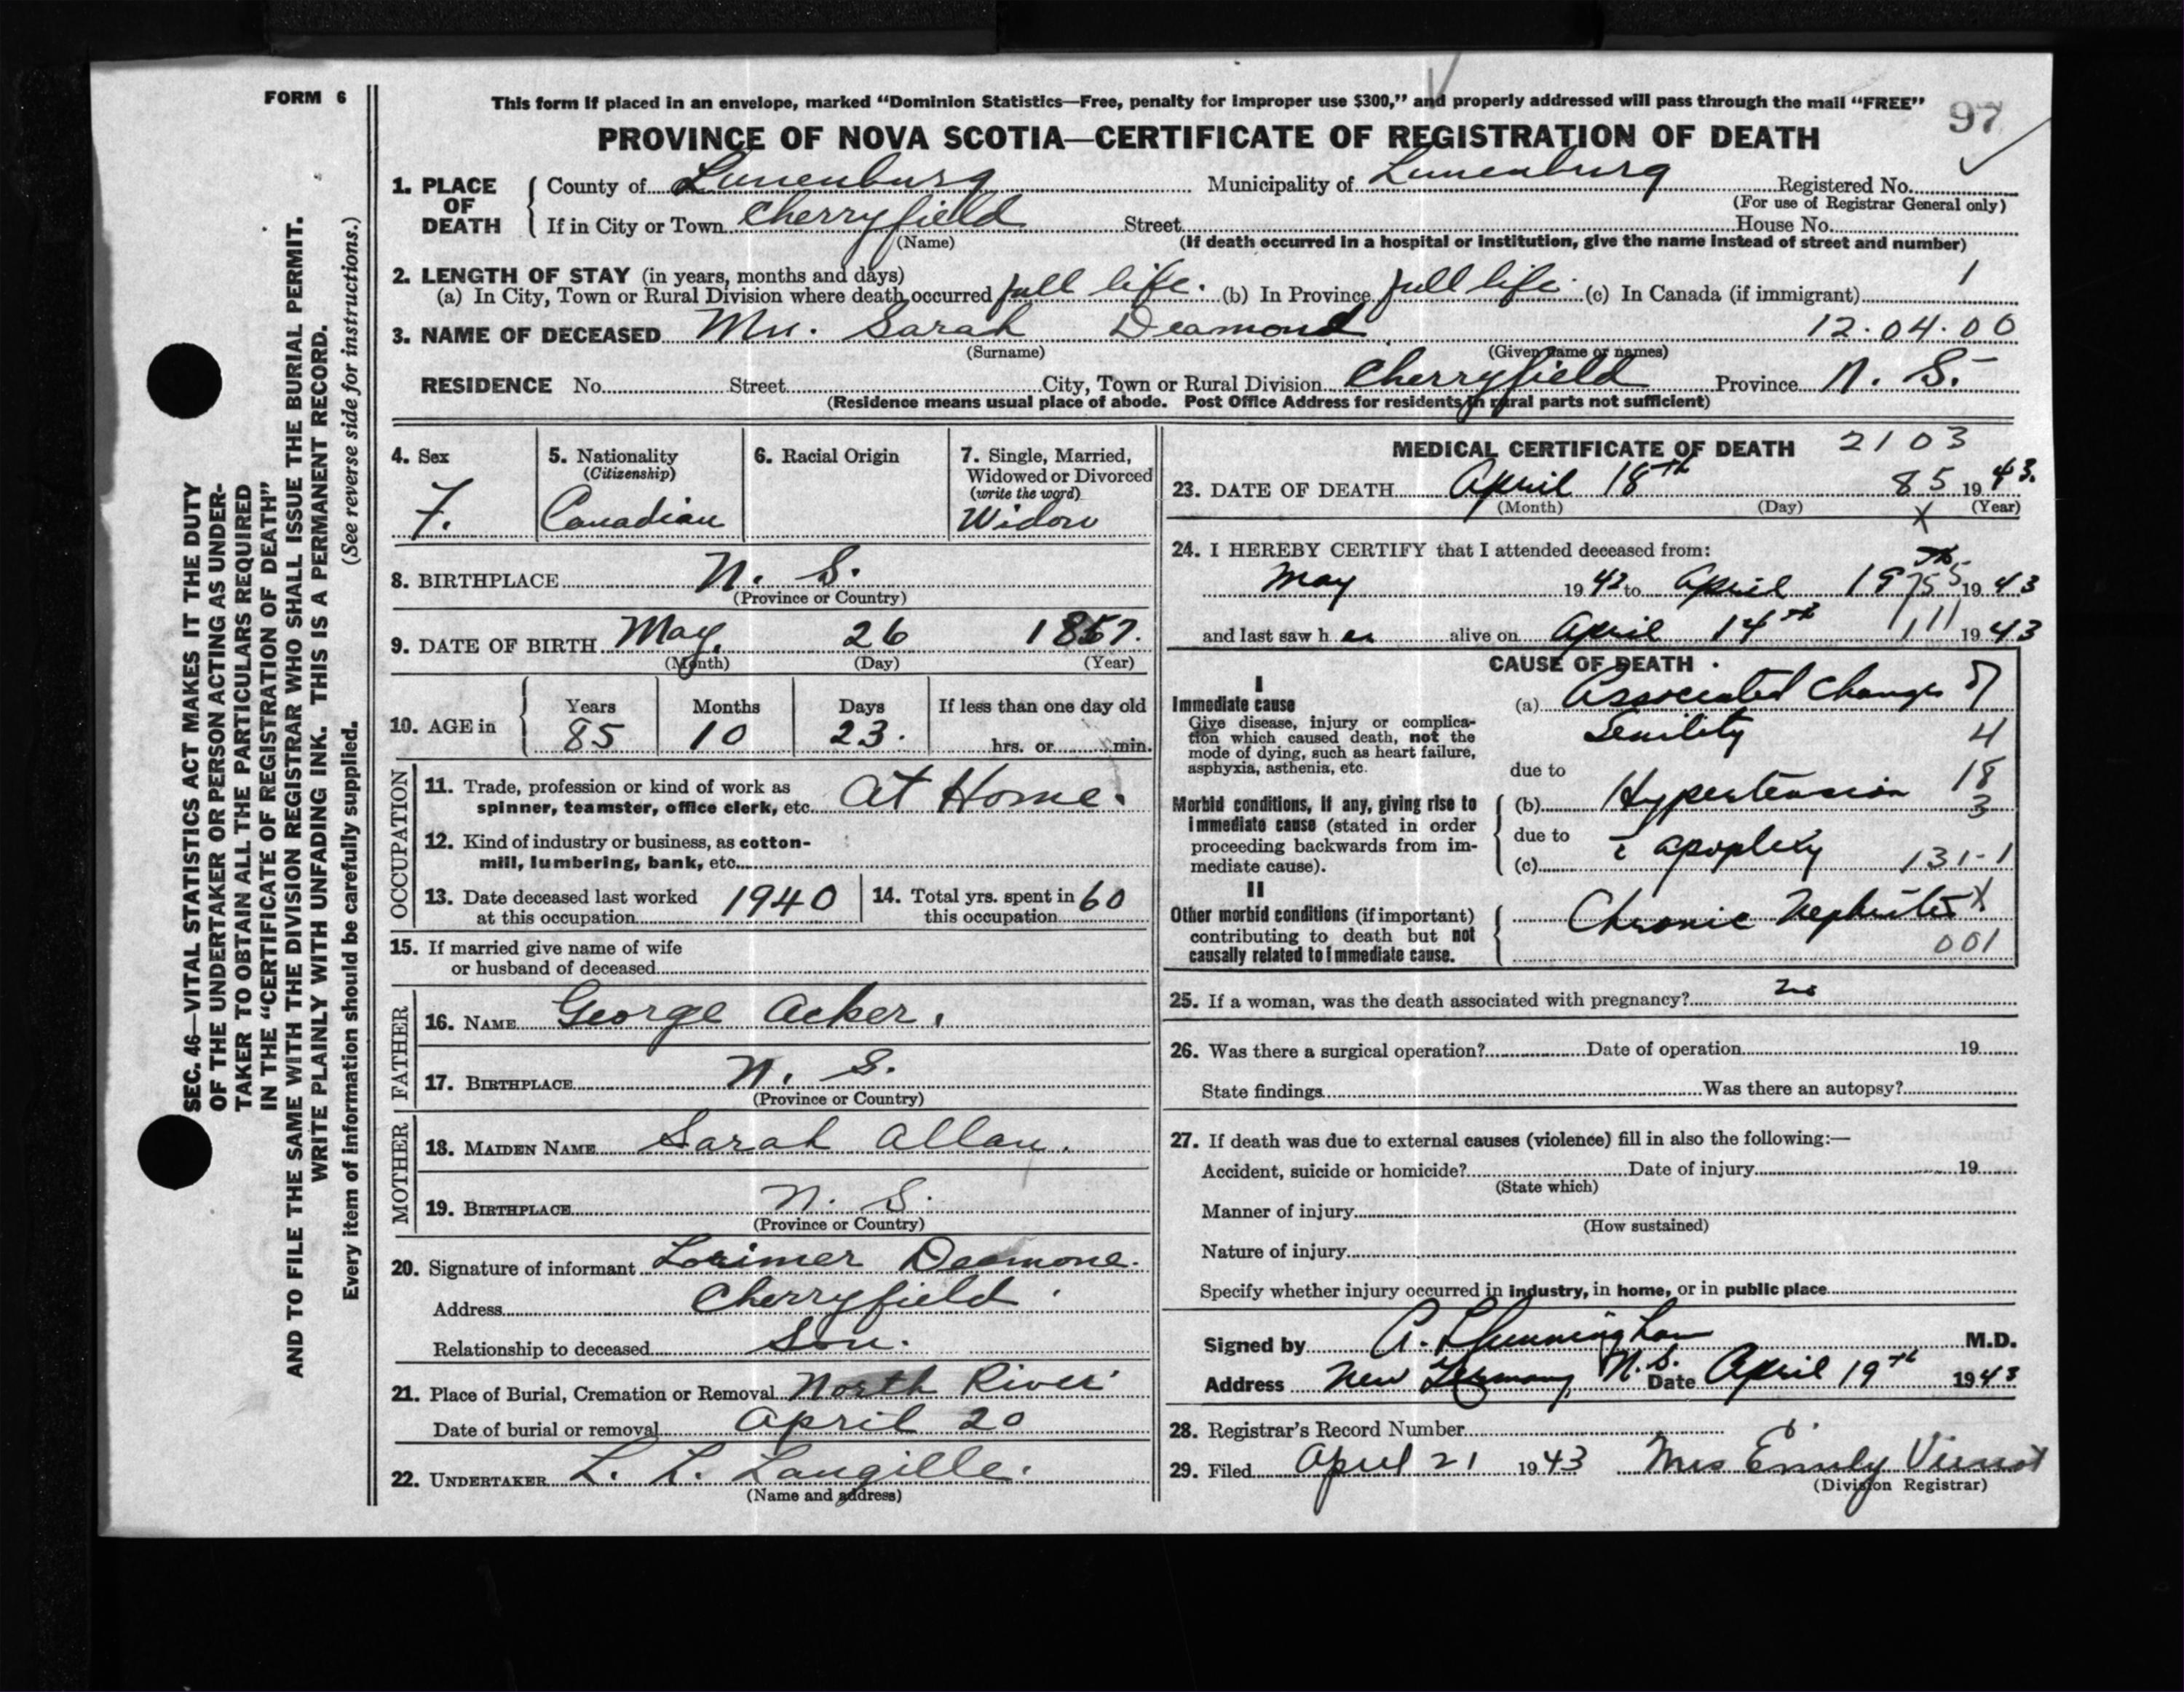 FORM 6
This form if placed in an envelope, marked “Dominion Statistics—Free, penalty for improper use $300,” and properly addressed will pass through the mail “FREE”
97
PROVINCE OF NOVA SCOTIA—CERTIFICATE OF REGISTRATION OF DEATH
1. PLACE OF DEATH
County of Lunenburg Municipality of Lunenburg Registered No.
(For use of Registrar General only)
If in City or Town Cherryfield Street House No.
(Name) (If death occurred in a hospital or institution, give the name instead of street and number)
2. LENGTH OF STAY (in years, months and days)
(a) In City, Town or Rural Division where death occurred full life. (b) In Province full life. (c) In Canada (if immigrant) 1
3. NAME OF DECEASED Mrs. Sarah Deamond 12.04.00
(Surname) (Given name or names)
RESIDENCE No. Street City, Town or Rural Division Cherryfield Province N. S.
(Residence means usual place of abode. Post Office Address for residents in rural parts not sufficient)
4. Sex
F.
5. Nationality
(Citizenship)
Canadian
6. Racial Origin
7. Single, Married,
Widowed or Divorced
(write the word)
Widow
8. BIRTHPLACE N. S.
(Province or Country)
9. DATE OF BIRTH May 26 1857.
(Month) (Day) (Year)
10. AGE in
Years Months Days If less than one day old
85 10 23. hrs. or min.
OCCUPATION
11. Trade, profession or kind of work as
spinner, teamster, office clerk, etc. At Home.
12. Kind of industry or business, as cotton-
mill, lumbering, bank, etc.
13. Date deceased last worked
at this occupation 1940
14. Total yrs. spent in
this occupation 60
15. If married give name of wife
or husband of deceased
FATHER
16. NAME George Acker.
17. BIRTHPLACE N. S.
(Province or Country)
MOTHER
18. MAIDEN NAME Sarah Allan.
19. BIRTHPLACE N. S.
(Province or Country)
20. Signature of informant Lorimer Deamone.
Address Cherryfield.
Relationship to deceased Son.
21. Place of Burial, Cremation or Removal North River
Date of burial or removal April 20
22. UNDERTAKER L. L. Langille.
(Name and address)
MEDICAL CERTIFICATE OF DEATH 2103
23. DATE OF DEATH April 18th 85 1943.
(Month) (Day) (Year)
X
24. I HEREBY CERTIFY that I attended deceased from:
May 1942 to April 1943
and last saw her alive on April 14th 1943
CAUSE OF DEATH
I
Immediate cause
Give disease, injury or complica-
tion which caused death, not the
mode of dying, such as heart failure,
asphyxia, asthenia, etc.
(a) Associated changes of
Senility 4
due to
Morbid conditions, if any, giving rise to
immediate cause (stated in order
proceeding backwards from im-
mediate cause).
(b) Hypertension 18
3
due to
(c) c̄ apoplexy 131-1
II
Other morbid conditions (if important)
contributing to death but not
causally related to immediate cause.
Chronic Nephritis X
001
25. If a woman, was the death associated with pregnancy? no
26. Was there a surgical operation? Date of operation 19
State findings Was there an autopsy?
27. If death was due to external causes (violence) fill in also the following:—
Accident, suicide or homicide? Date of injury 19
(State which)
Manner of injury
(How sustained)
Nature of injury
Specify whether injury occurred in industry, in home, or in public place
Signed by M.D.
Address New Germany, N.S. Date April 19th 1943
28. Registrar's Record Number
29. Filed April 21 1943 Mrs Emily
(Division Registrar)
SEC. 46—VITAL STATISTICS ACT MAKES IT THE DUTY
OF THE UNDERTAKER OR PERSON ACTING AS UNDER-
TAKER TO OBTAIN ALL THE PARTICULARS REQUIRED
IN THE “CERTIFICATE OF REGISTRATION OF DEATH”
AND TO FILE THE SAME WITH THE DIVISION REGISTRAR WHO SHALL ISSUE THE BURIAL PERMIT.
WRITE PLAINLY WITH UNFADING INK. THIS IS A PERMANENT RECORD.
Every item of information should be carefully supplied. (See reverse side for instructions.)